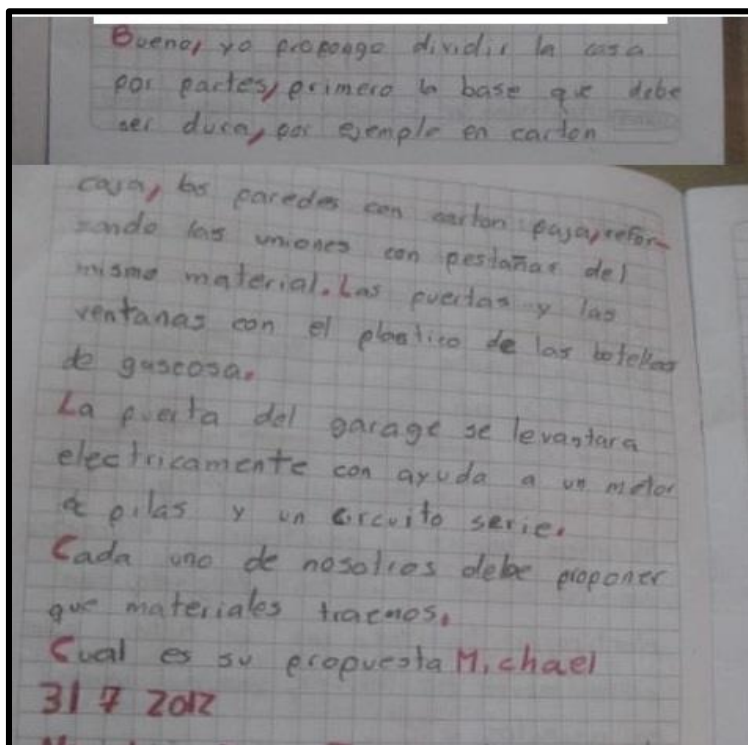 Bueno, yo propongo dividir la casa
por partes, primero la base que debe
ser dura, por ejemplo en carton
caja, las paredes con carton paja, refor-
zando las uniones con pestañas del
mismo material. Las puertas y las
ventanas con el plastico de las botellas
de gaseosa.
La puerta del garage se levantara
electricamente con ayuda a un motor
de pilas y un circuito serie.
Cada uno de nosotros debe proponer
que materiales traemos.
Cual es su propuesta Michael
31 7 2012